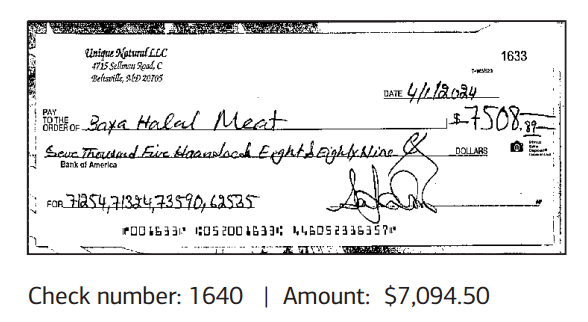 Unique Natural LLC
4715 Sellman Road, C
Beltsville, MD 20705
1633
DATE 4/1/2024
PAY TO THE ORDER OF Zaxa Halal Meat $ 7508.89
Seve Thousand Five Haandocd Eight & Eighty Nine DOLLARS
Bank of America
FOR 71254,71324,73590,62535
⑈001633⑈ ⑆052001633⑆ 446052336357⑈
Check number: 1640 | Amount: $7,094.50